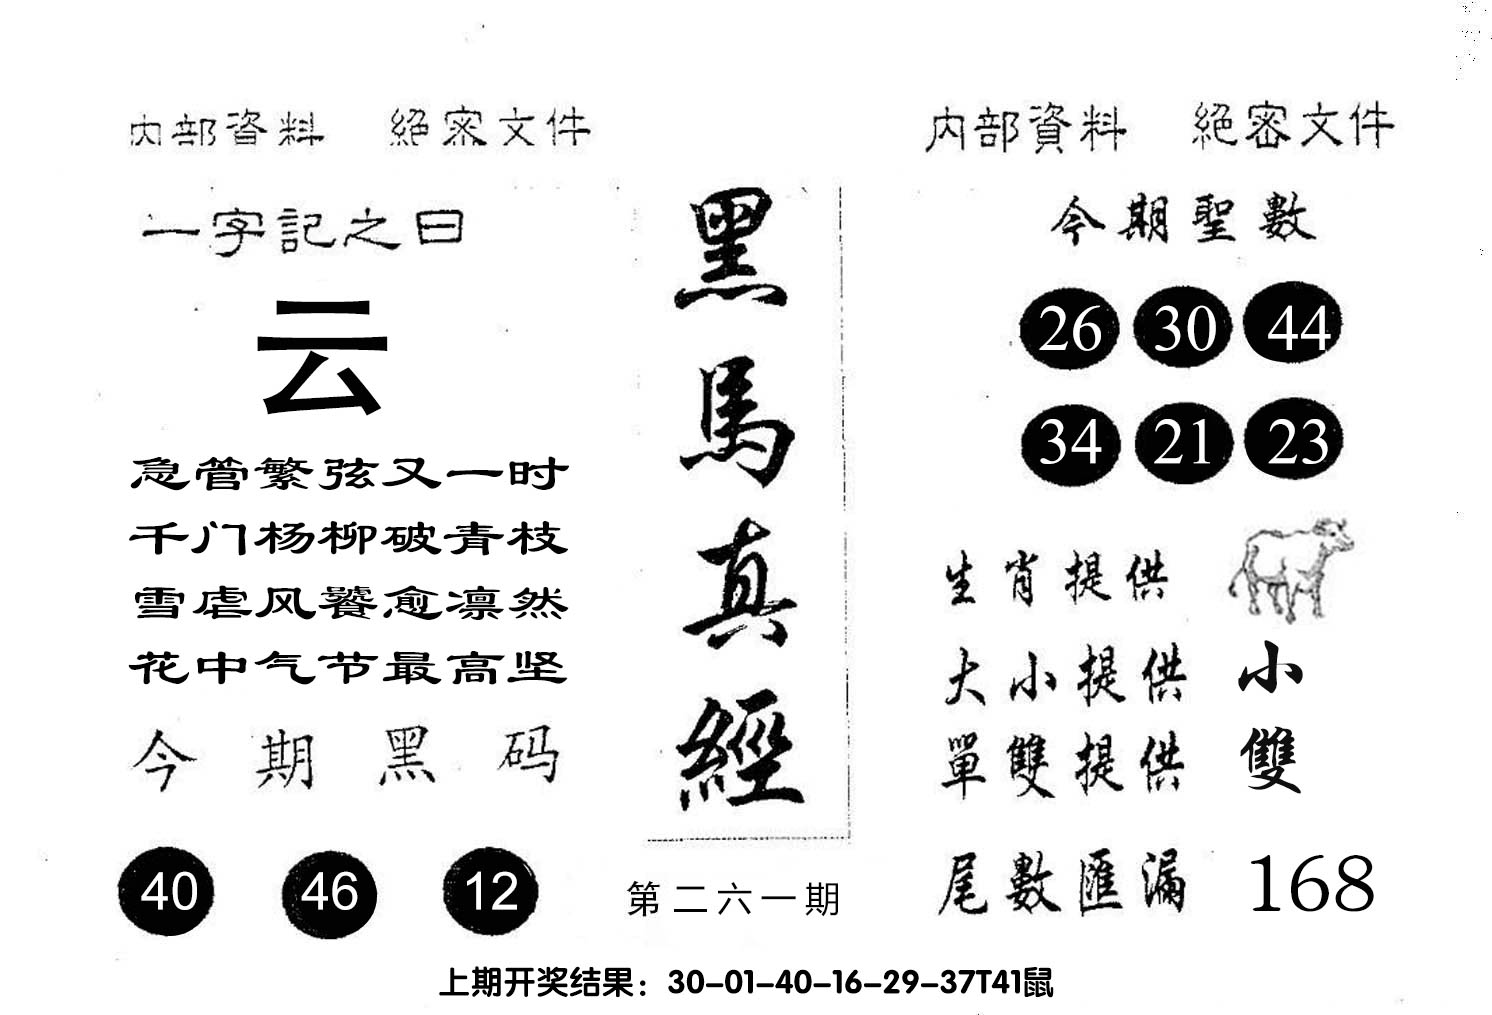 内部資料 絕密文件
一字記之曰
云
急管繁弦又一时
千门杨柳破青枝
雪虐风饕愈凛然
花中气节最高坚
今期黑码
40 46 12
黑馬真經
第二六一期
内部資料 絕密文件
今期聖數
26 30 44
34 21 23
生肖提供
大小提供 小
單雙提供 雙
尾數匯漏 168
上期开奖结果：30-01-40-16-29-37T41鼠